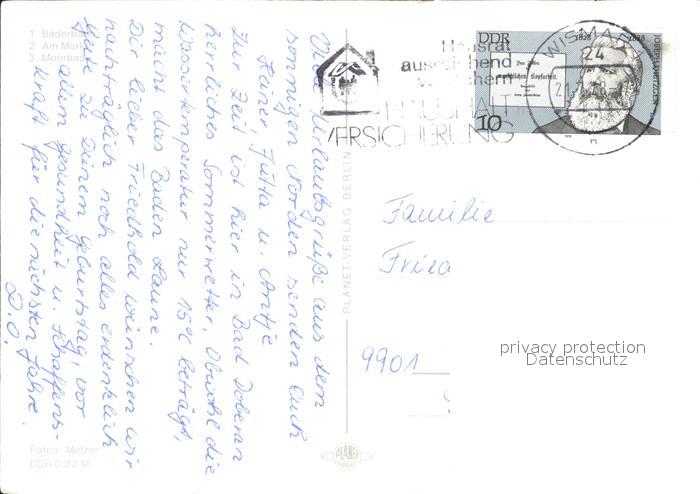 1. Bäderbahn
2. Am Markt
3. Moorbad
Viele Urlaubsgrüße aus dem
sonnigen Norden senden Euch
Heiner, Jutta u. Antje
Zur Zeit ist hier in Bad Doberan
herrliches Sommerwetter. Obwohl die
Wassertemperatur nur 15°C beträgt,
macht das Baden Laune.
Dir lieber Friedhold wünschen wir
nachträglich noch alles erdenklich
Gute zu Deinem Geburtstag, vor
allem Gesundheit u. Schaffens-
kraft für die nächsten Jahre.
D.O.
Fotos: Melzer
DDR 0,20 M
PLANET-VERLAG BERLIN
PLANET
Hausrat
ausreichend
versichern
HAUSHALT
VERSICHERUNG
WISMAR
24
n
DDR
1828
1888
JOSEPH DIETZGEN
10
Familie
Fried
9901
privacy protection
Datenschutz